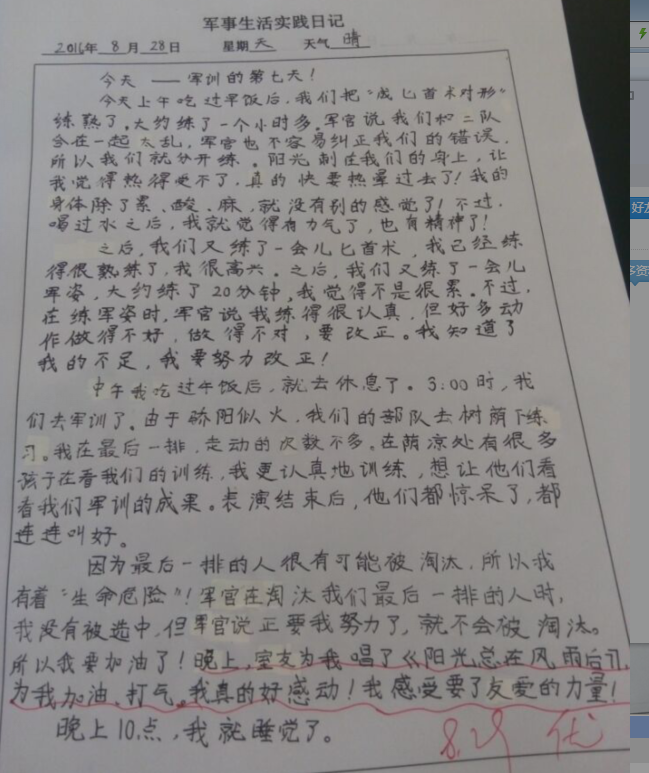 军事生活实践日记
2016年 8 月 28 日 星期 天 天气 晴
今天 —— 军训的第七天！
今天上午吃过早饭后，我们把“战匕首术对形”
练熟了。大约练了一个小时多，军官说我们和二队
合在一起太乱，军官也不容易纠正我们的错误，
所以我们就分开练。阳光刺在我们的身上，让
我觉得热得受不了，真的快要热晕过去了！我的
身体除了累、酸、麻，就没有别的感觉了！不过，
喝过水之后，我就觉得有力气了，也有精神了！
之后，我们又练了一会儿匕首术，我已经练
得很熟练了，我很高兴。之后，我们又练了一会儿
军姿，大约练了20分钟，我觉得不是很累。不过，
在练军姿时，军官说我练得很认真，但好多动
作做得不好，做得不对，要改正。我知道了
我的不足，我要努力改正！
中午我吃过午饭后，就去休息了。3:00时，我
们去军训了。由于骄阳似火，我们的部队去树荫下练
习。我在最后一排，走动的次数不多。在荫凉处有很多
孩子在看我们的训练，我更认真地训练，想让他们看
看我们军训的成果。表演结束后，他们都惊呆了，都
连连叫好。
因为最后一排的人很有可能被淘汰，所以我
有着“生命危险”！军官在淘汰我们最后一排的人时，
我没有被选中，但军官说正要我努力了，就不会被淘汰。
所以我要加油了！晚上，室友为我唱了《阳光总在风雨后》，
为我加油、打气。我真的好感动！我感受要了友爱的力量！
晚上10点，我就睡觉了。
8.29 优
好友
多资